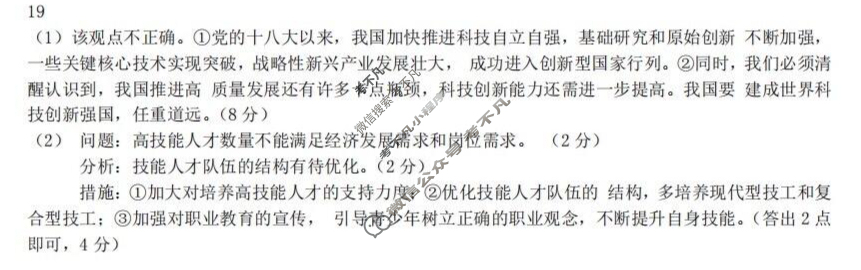 19
（1）该观点不正确。①党的十八大以来，我国加快推进科技自立自强，基础研究和原始创新 不断加强，
一些关键核心技术实现突破，战略性新兴产业发展壮大， 成功进入创新型国家行列。②同时，我们必须清
醒认识到，我国推进高 质量发展还有许多卡点瓶颈，科技创新能力还需进一步提高。我国要 建成世界科
技创新强国，任重道远。（8分）
（2） 问题：高技能人才数量不能满足经济发展需求和岗位需求。 （2分）
分析：技能人才队伍的结构有待优化。（2分）
措施：①加大对培养高技能人才的支持力度。②优化技能人才队伍的 结构，多培养现代型技工和复
合型技工；③加强对职业教育的宣传， 引导青少年树立正确的职业观念，不断提升自身技能。（答出2点
即可，4分）
考不凡
微信搜索小程序
考不凡
微信公众号考不凡